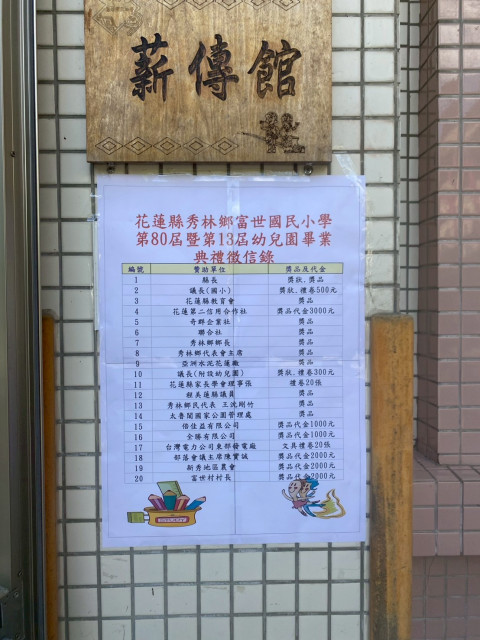 薪傳館
花蓮縣秀林鄉富世國民小學
第80屆暨第13屆幼兒園畢業
典禮徵信錄
編號 贊助單位 獎品及代金
1 縣長 獎狀、獎品
2 議長(國小) 獎狀、禮卷500元
3 花蓮縣教育會 獎品
4 花蓮第二信用合作社 獎品代金3000元
5 奇畔企業社 獎品
6 聯合社 獎品
7 秀林鄉鄉長 獎品
8 秀林鄉代表會主席 獎品
9 亞洲水泥花蓮廠 獎品
10 議長(附設幼兒園) 獎狀、禮卷300元
11 花蓮縣家長學會理事張 禮卷20張
12 程美蓮縣議員 獎品
13 秀林鄉民代表 王沈剛竹 獎品
14 太魯閣國家公園管理處 獎品
15 倍佳益有限公司 獎品代金1000元
16 全勝有限公司 獎品代金1000元
17 台灣電力公司東部發電廠 文具禮卷20張
18 部落會議主席陳寶誠 獎品代金2000元
19 新秀地區農會 獎品代金2000元
20 富世村村長 獎品代金2000元